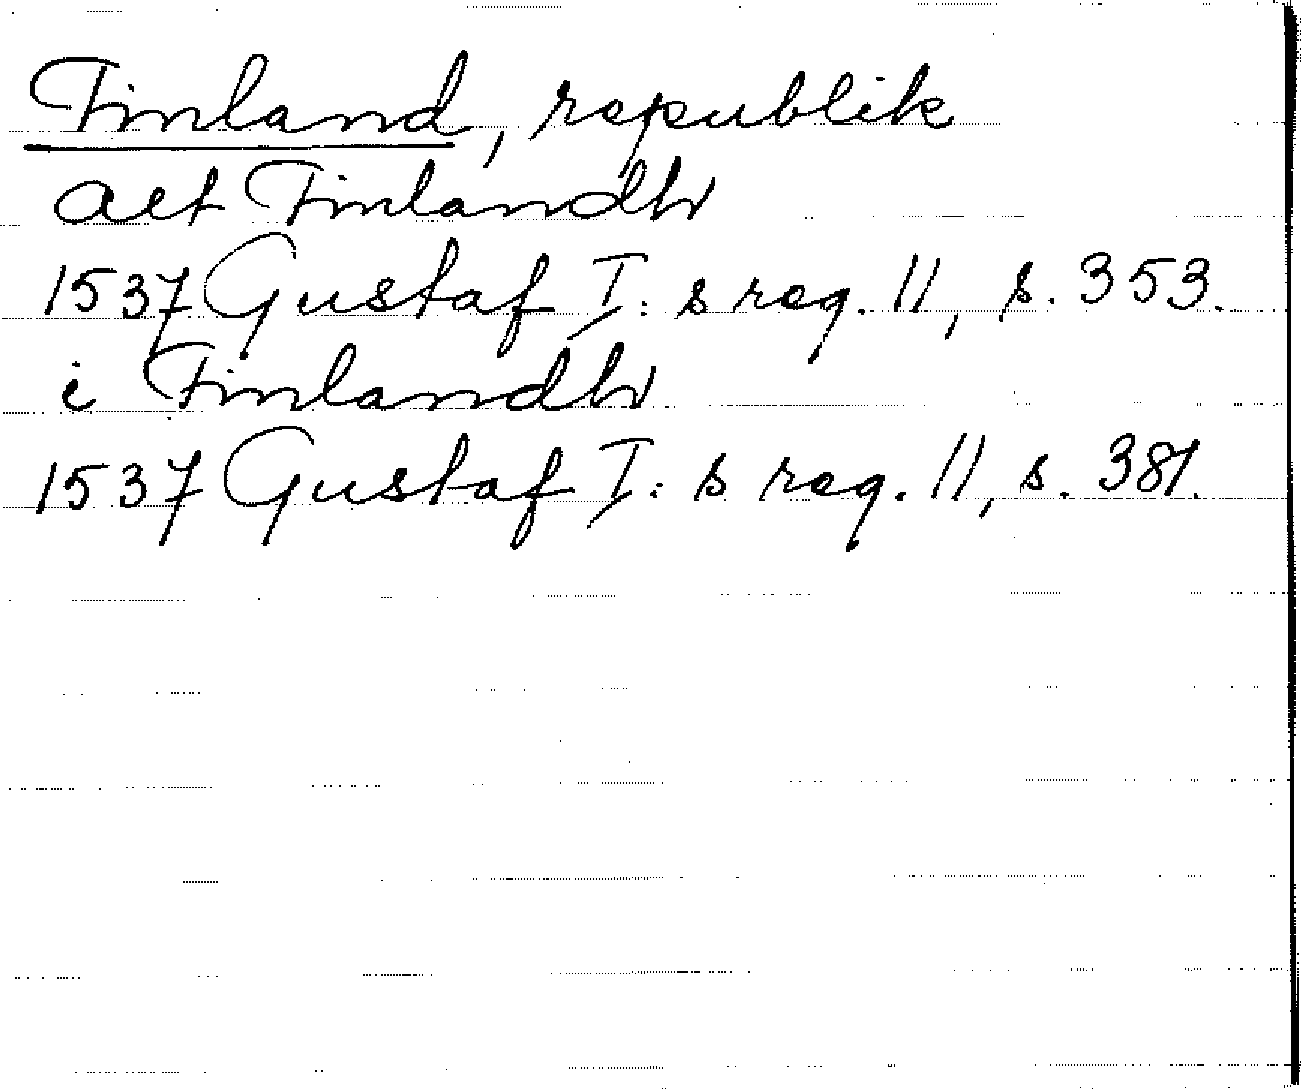 Finland, republik
alt Finlandh
1537 Gustaf I:s reg. 11, s. 353.
i Finlandh
1537 Gustaf I:s reg. 11, s. 381.